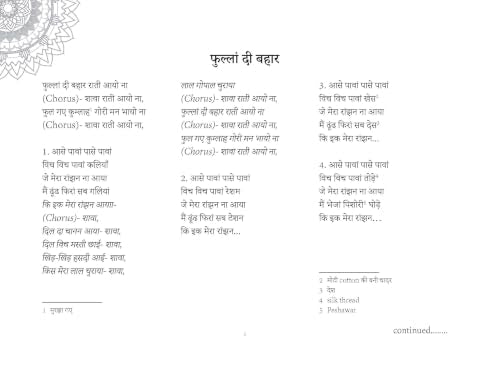 फुल्लां दी बहार
फुल्लां दी बहार राती आयो ना
(Chorus)- शावा राती आयो ना,
फुल गए कुम्लाह¹ गोरी मन भायो ना
(Chorus)- शावा राती आयो ना,
1. आसे पावां पासे पावां
विच विच पावां कलियाँ
जे मेरा रांझन ना आया
मैं ढूंढ फिरां सब गलियां
कि इक मेरा रांझन आया-
(Chorus)- शावा,
दिल दा चानन आया- शावा,
दिल विच मस्ती छाई- शावा,
खिड़-खिड़ हसदी आई- शावा,
किस मेरा लाल चुराया- शावा,
1 मुरझा गए
लाल गोपाल चुराया
(Chorus)- शावा राती आयो ना,
फुल्लां दी बहार राती आयो ना
(Chorus)- शावा राती आयो ना,
फुल गए कुम्लाह गोरी मन भायो ना
(Chorus)- शावा राती आयो ना,
2. आसे पावां पासे पावां
विच विच पावां रेशम
जे मेरा रांझन ना आया
मैं ढूंढ फिरां सब टेशन
कि इक मेरा रांझन...
3. आसे पावां पासे पावां
विच विच पावां खेस²
जे मेरा रांझन ना आया
मैं ढूंढ फिरां सब देस³
कि इक मेरा रांझन...
4. आसे पावां पासे पावां
विच विच पावां तोड़े⁴
जे मेरा रांझन ना आया
मैं भेजां पिशोरी⁵ घोड़े
कि इक मेरा रांझन...
2 मोटी cotton की बनी चादर
3 देश
4 silk thread
5 Peshawar
continued........